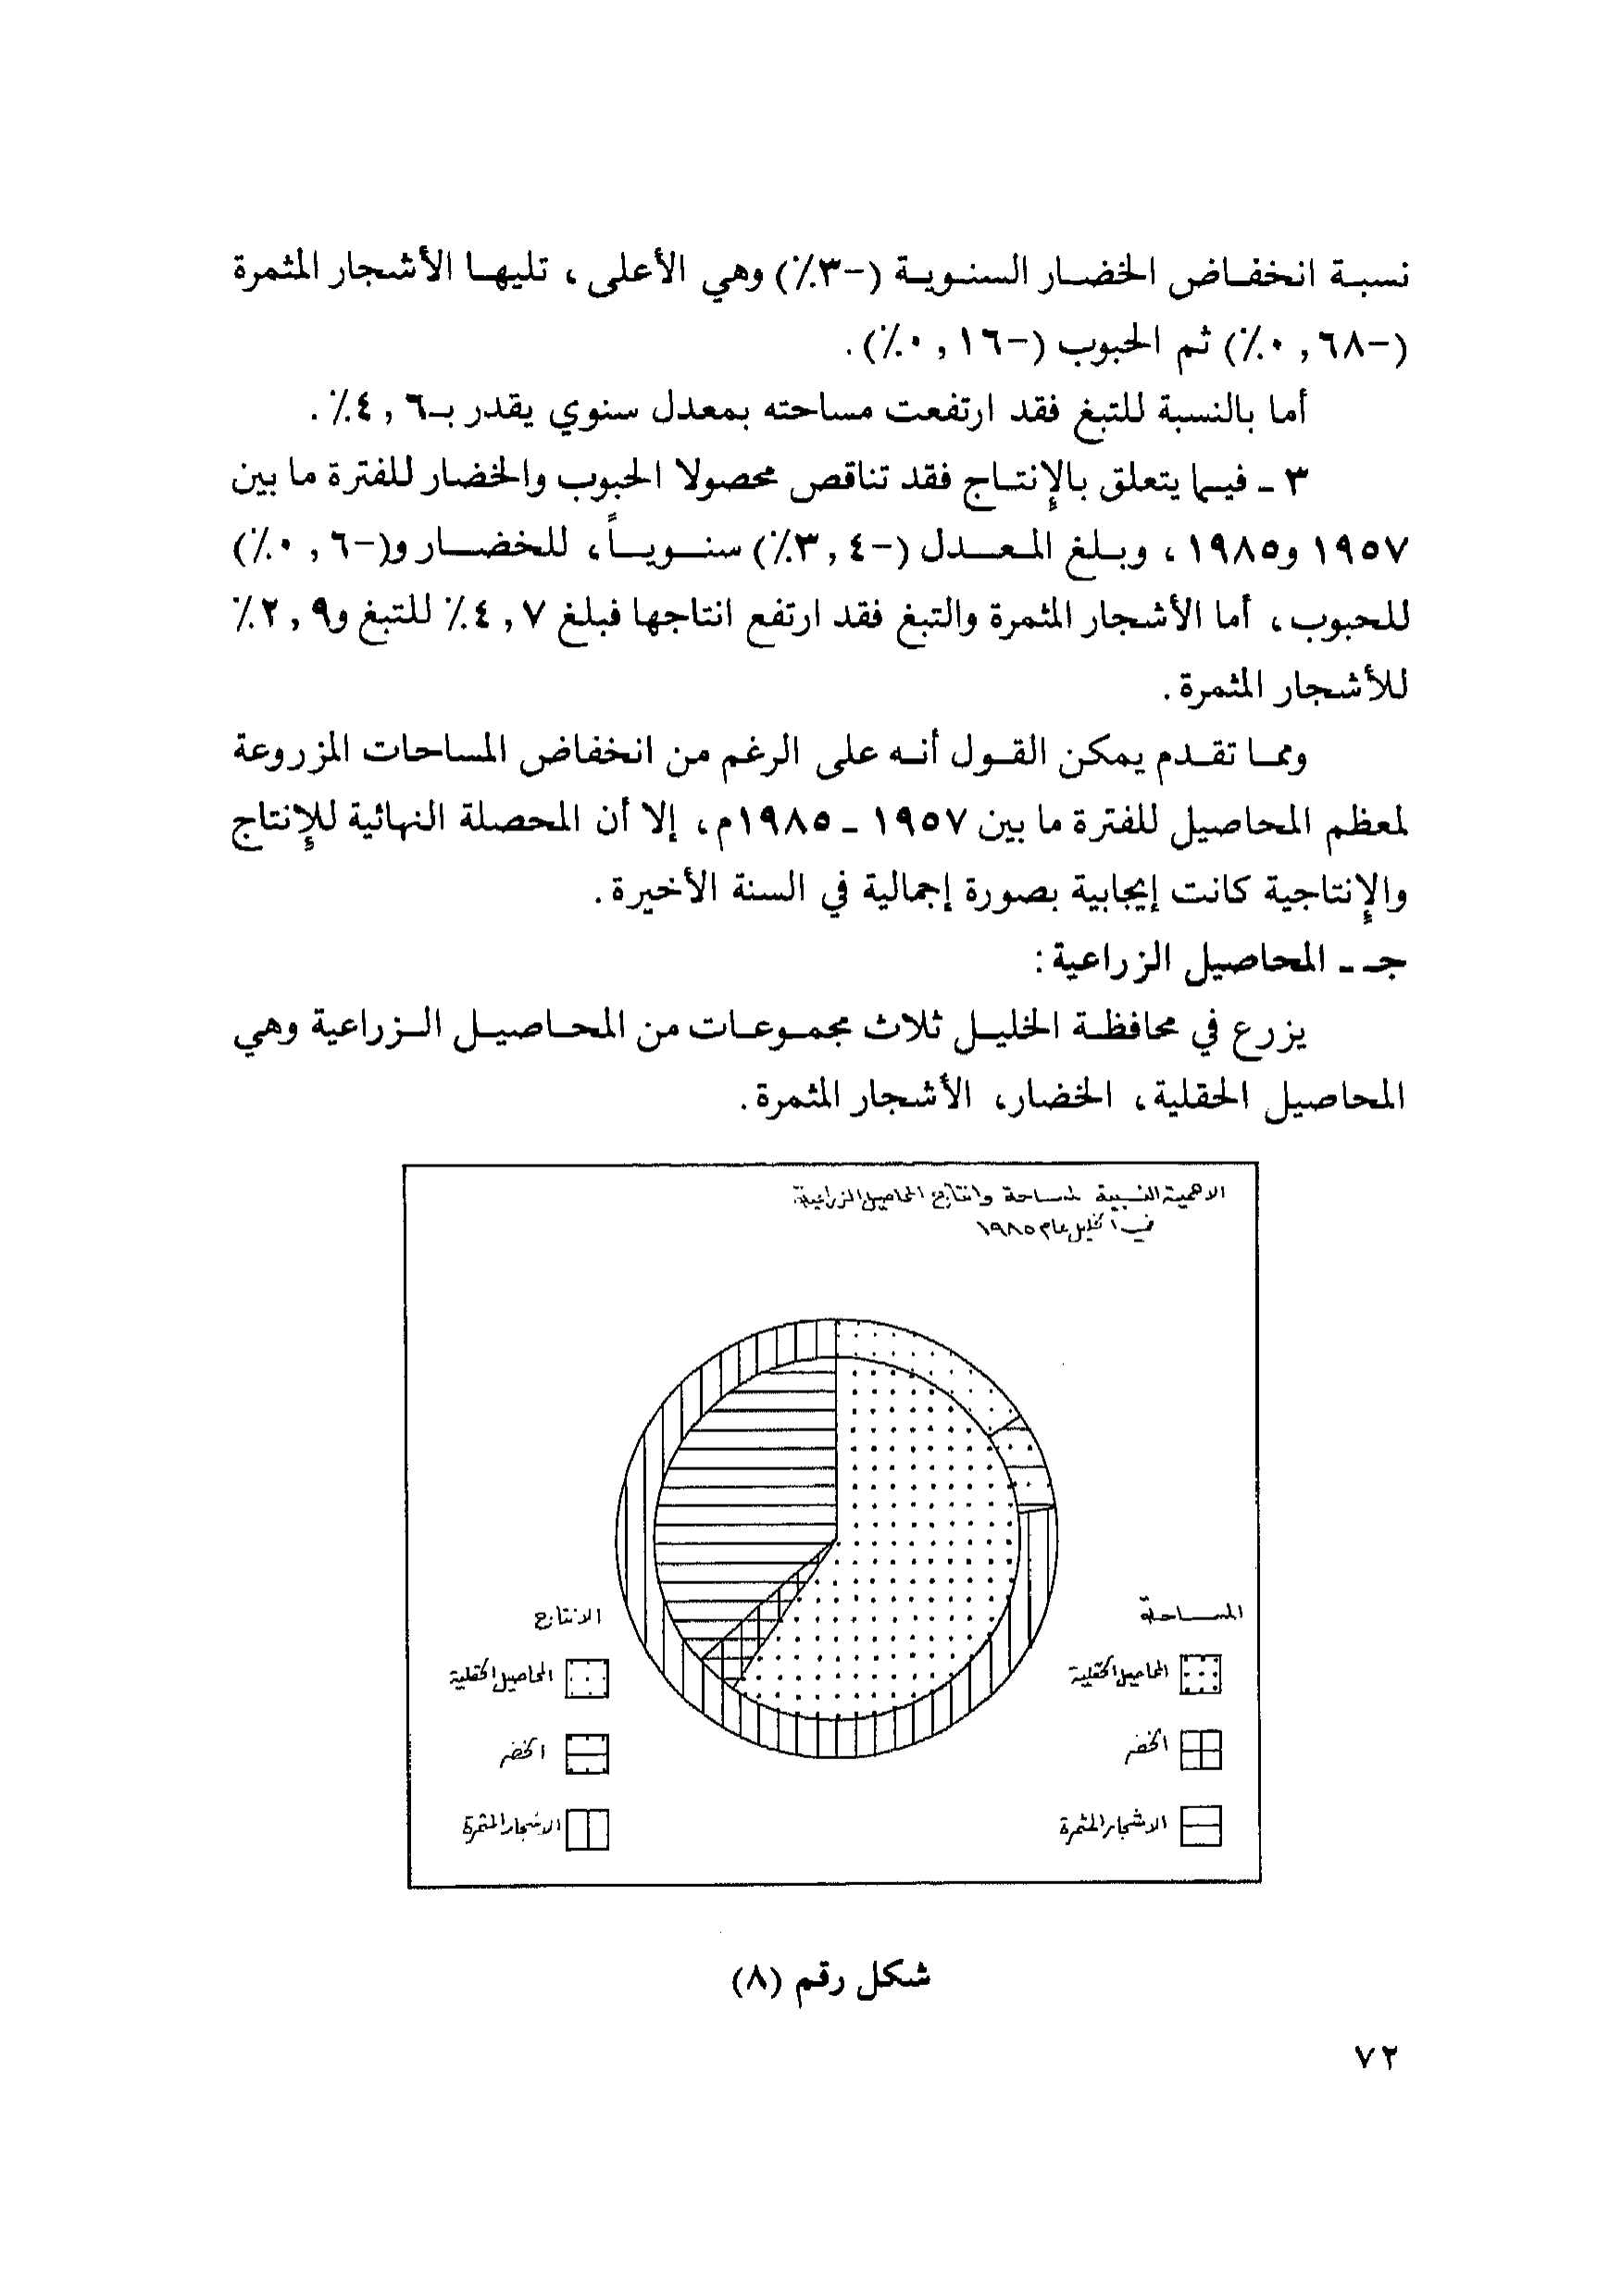 نسبة انخفاض الخضار السنوية (-٣٪) وهي الأعلى، تليها الأشجار المثمرة
(-٦٨,٠٪) ثم الحبوب (-١٦,٠٪).
أما بالنسبة للتبغ فقد ارتفعت مساحته بمعدل سنوي يقدر بـ٦,٤٪.
٣ ـ فيما يتعلق بالإنتاج فقد تناقص محصولا الحبوب والخضار للفترة ما بين
١٩٥٧ و١٩٨٥، وبلغ المعدل (-٤,٣٪) سنوياً، للخضار و(-٦,٠٪)
للحبوب، أما الأشجار المثمرة والتبغ فقد ارتفع انتاجها فبلغ ٧,٤٪ للتبغ و٩,٢٪
للأشجار المثمرة.
ومما تقدم يمكن القول أنه على الرغم من انخفاض المساحات المزروعة
لمعظم المحاصيل للفترة ما بين ١٩٥٧ ـ ١٩٨٥م، إلا أن المحصلة النهائية للإنتاج
والإنتاجية كانت إيجابية بصورة إجمالية في السنة الأخيرة.
جـ ـ المحاصيل الزراعية:
يزرع في محافظة الخليل ثلاث مجموعات من المحاصيل الزراعية وهي
المحاصيل الحقلية، الخضار، الأشجار المثمرة.
الاهمية النسبية لمساحة وانتاج المحاصيل الزراعية
في الخليل عام ١٩٨٥
المساحة
المحاصيل الحقلية
الخضر
الاشجار المثمرة
الانتاج
المحاصيل الحقلية
الخضر
الاشجار المثمرة
شكل رقم (٨)
٧٢